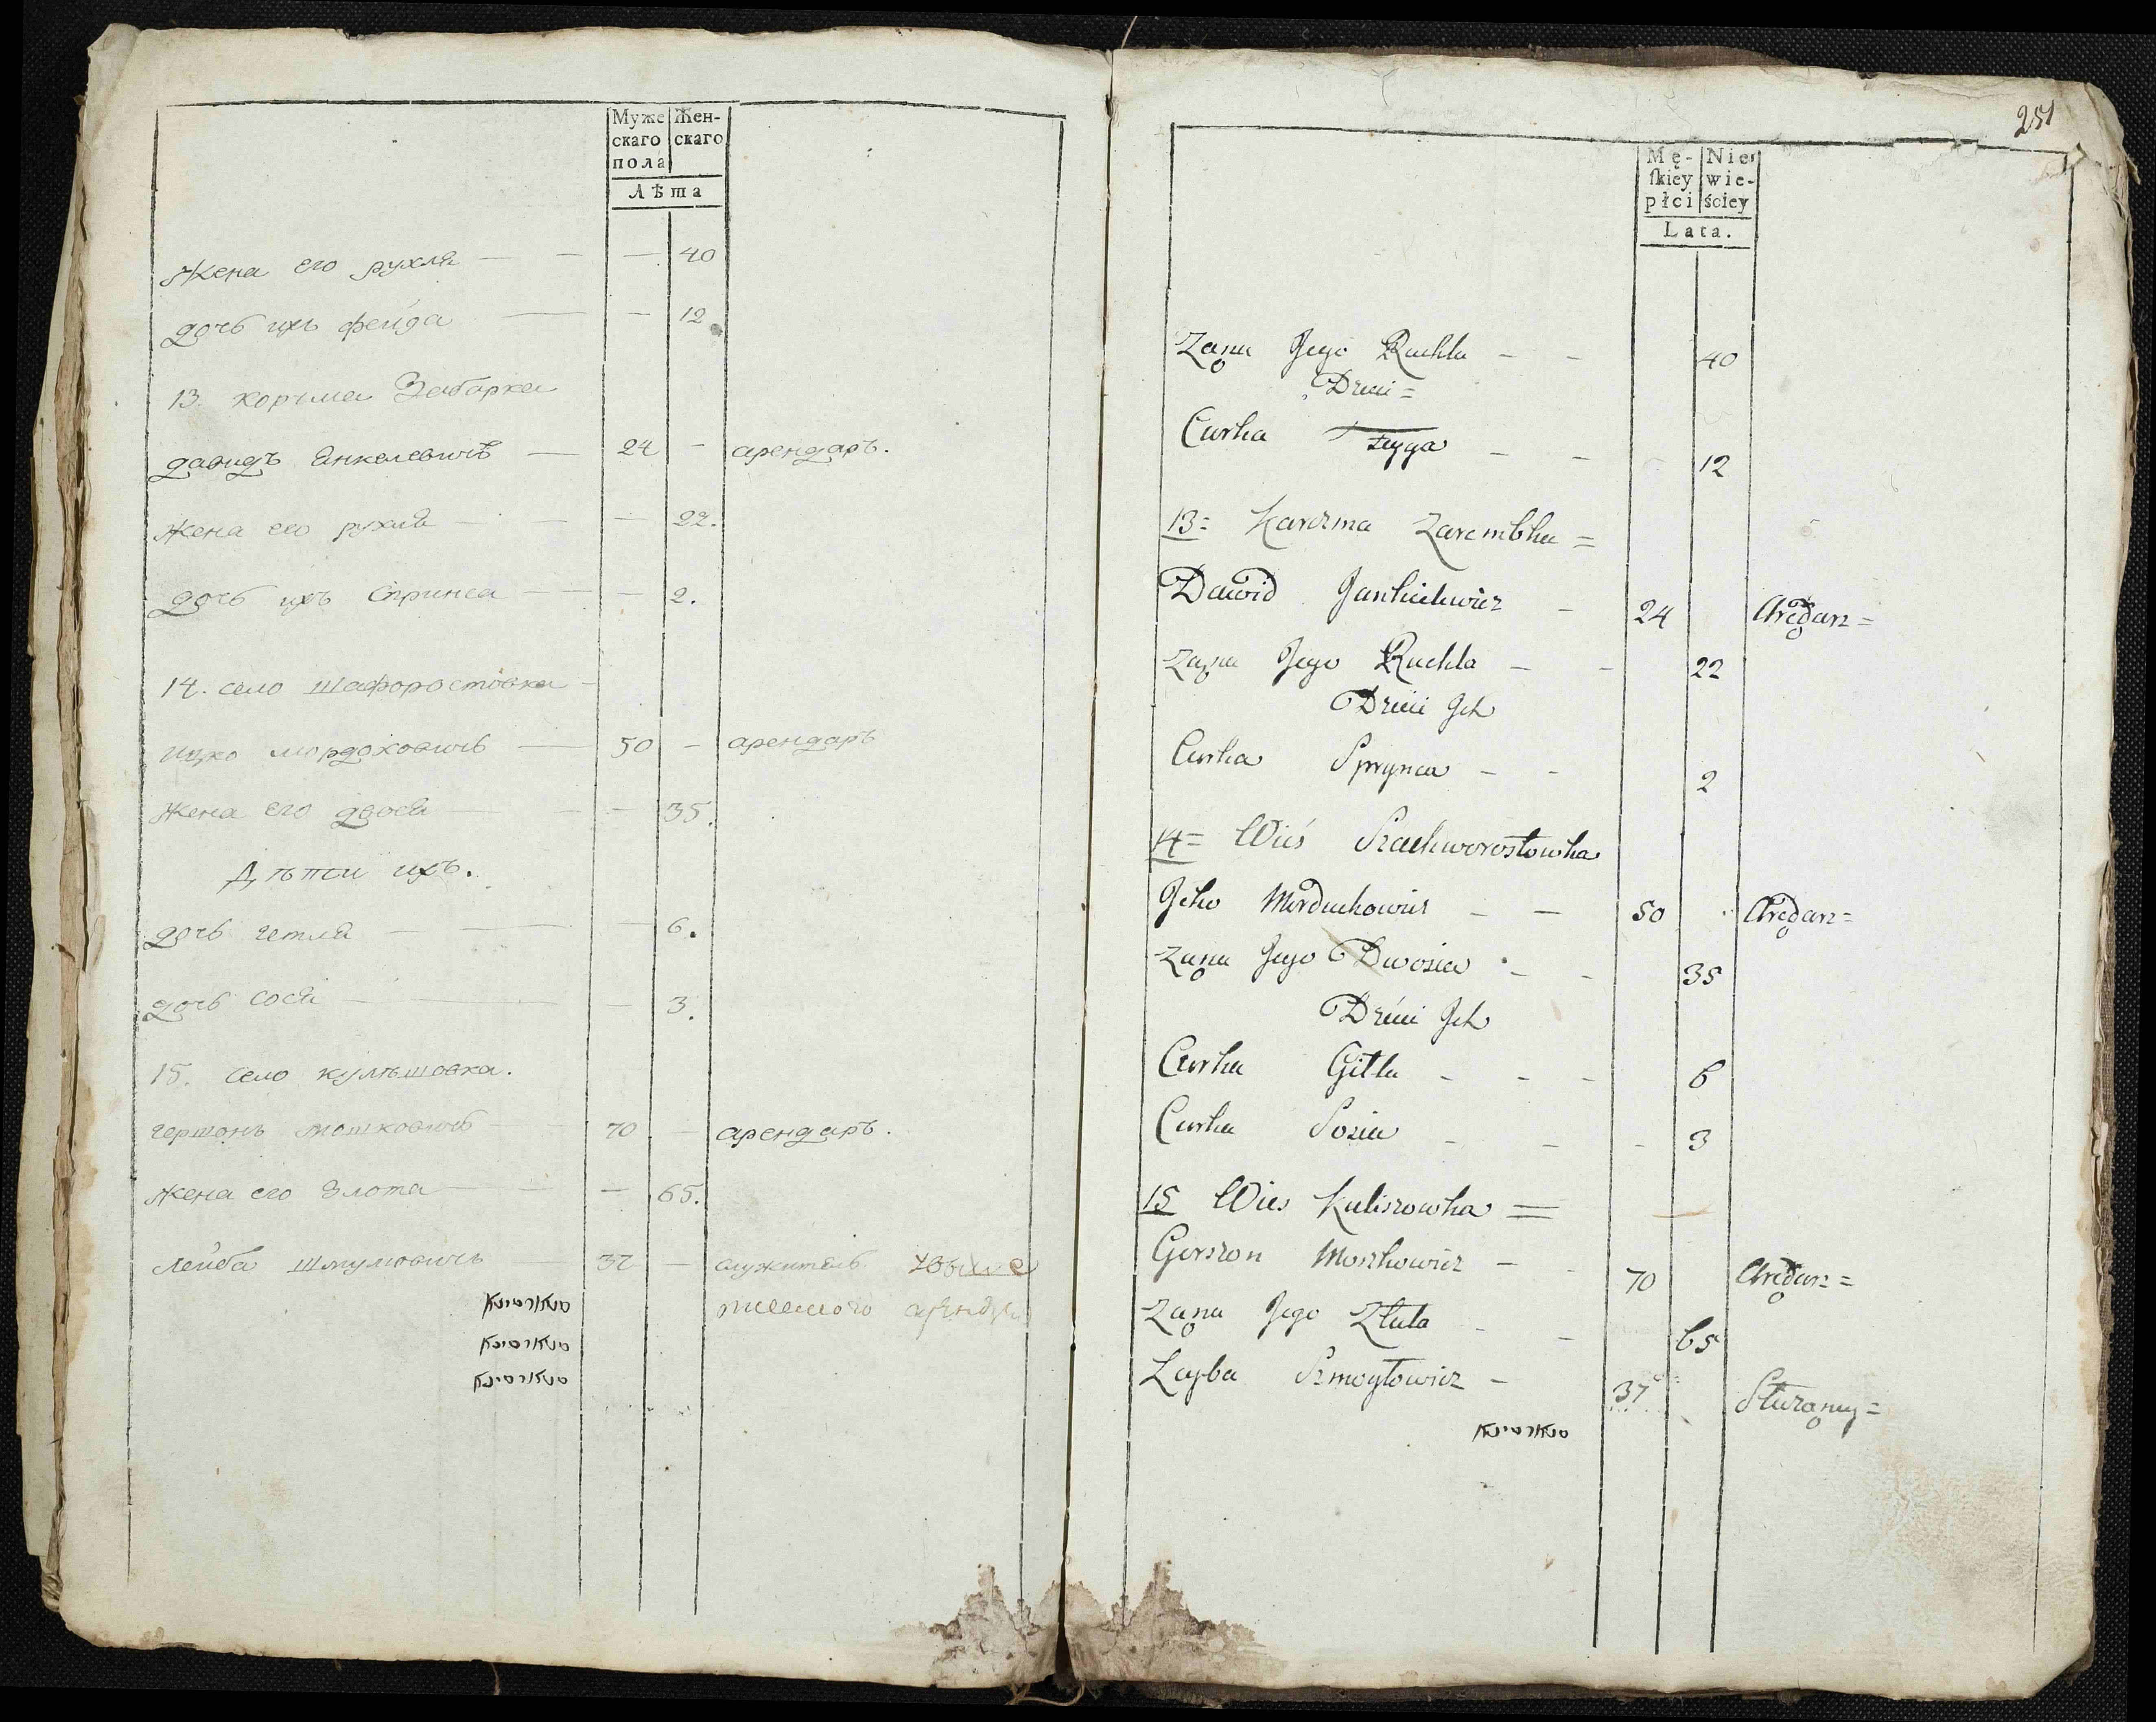 Муже Жен-
скаго скаго
пола
Лѣта
Жена его рухля — — — 40
дочь ихъ фейга — — 12
13. корчма Заборка
давидъ Янкелевичъ — 24 - арендаръ.
Жена его рухля — — — 22.
дочь ихъ Спринса — — — 2.
14. село шафоростовка -
ицко мордоховичь — 50 - арендаръ
Жена его двося — — — 35.
Дѣти ихъ.
дочь гетля — — — 6.
дочь сося — — — 3.
15. село кулѣшовка.
гершонъ мошковичь — — 70 — арендаръ.
жена его Злота — — — 65.
лейба шмуловичъ — 37 — служитель
251
Mę- Nie
ſkiey wie-
płci ściey
Lata.
Zona Jego Ruchla - - 40
Dzieci =
Curka Feyga - - 12
13= Karczma Zarembka =
Dawid Jankielewicz - 24 Aredarz =
Zona Jego Ruchla - - 22
Dzieci Jch
Curka Sprynca - - 2
14= Wieś Szachworostowka
Jcko Morduchowicz - - 50 Aredarz =
Zona Jego Dwosia - - 35
Dzieci Jch
Curka Gitla - - - 6
Curka Sosia - - - 3
15 Wies Kuliszowka =
Gerszon Moszkowicz - - 70 Aredarz =
Zona Jego Złota - - 65
Layba Szmoyłowicz - 37 Słuzamy =